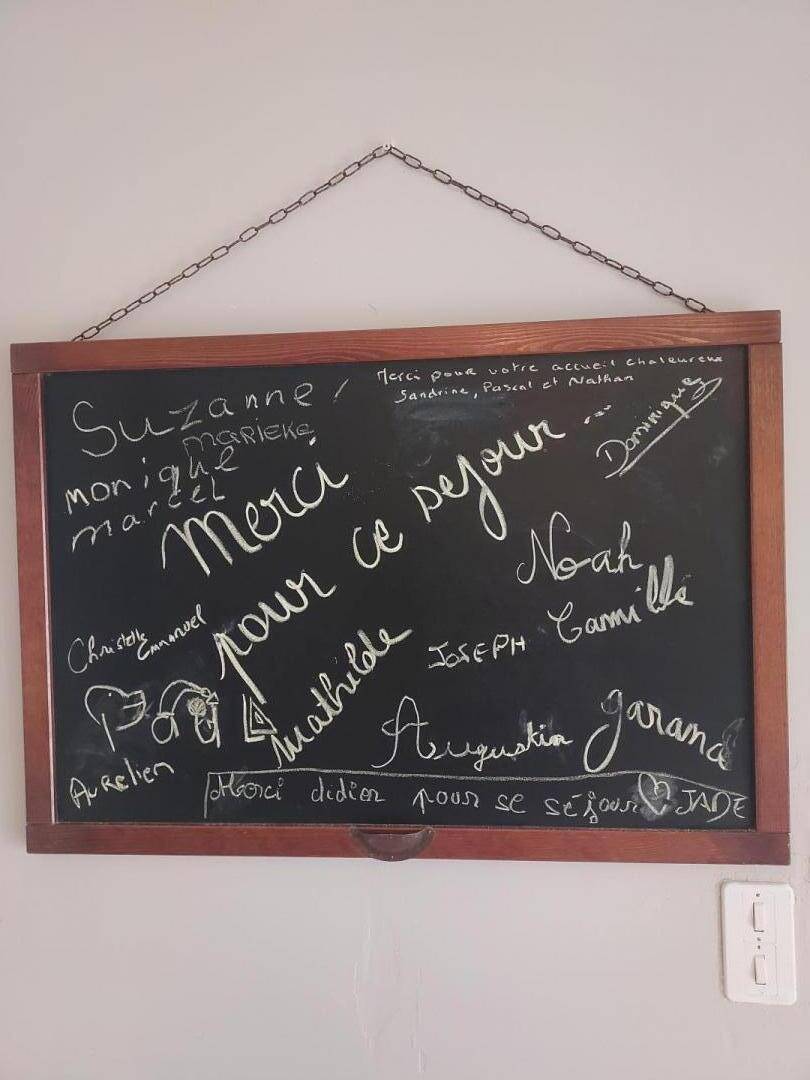 Suzanne !
Merci pour votre accueil chaleureux
Sandrine, Pascal et Nathan
Marieke
Monique
Marcel
Dominique
Merci
pour ce sejour...
Noah
Camille
Christelle
Emmanuel
Joseph
Mathilde
Augustin
Aurelien
Merci didier pour se séjour JADE